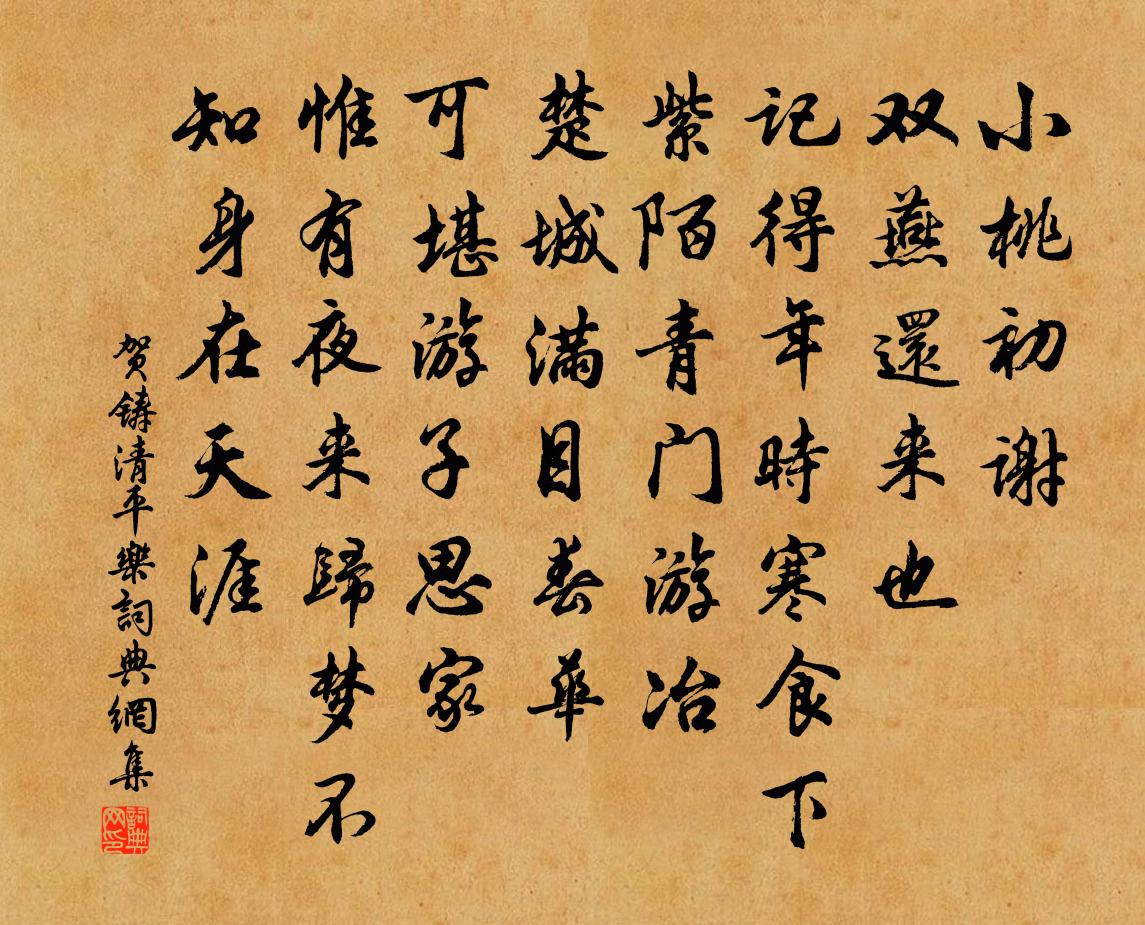 小桃初谢
双燕還来也
記得年時寒食下
紫陌青门游冶
楚城满目春華
可堪游子思家
惟有夜来歸梦不
知身在天涯
贺铸清平樂詞典網集
詞典网印